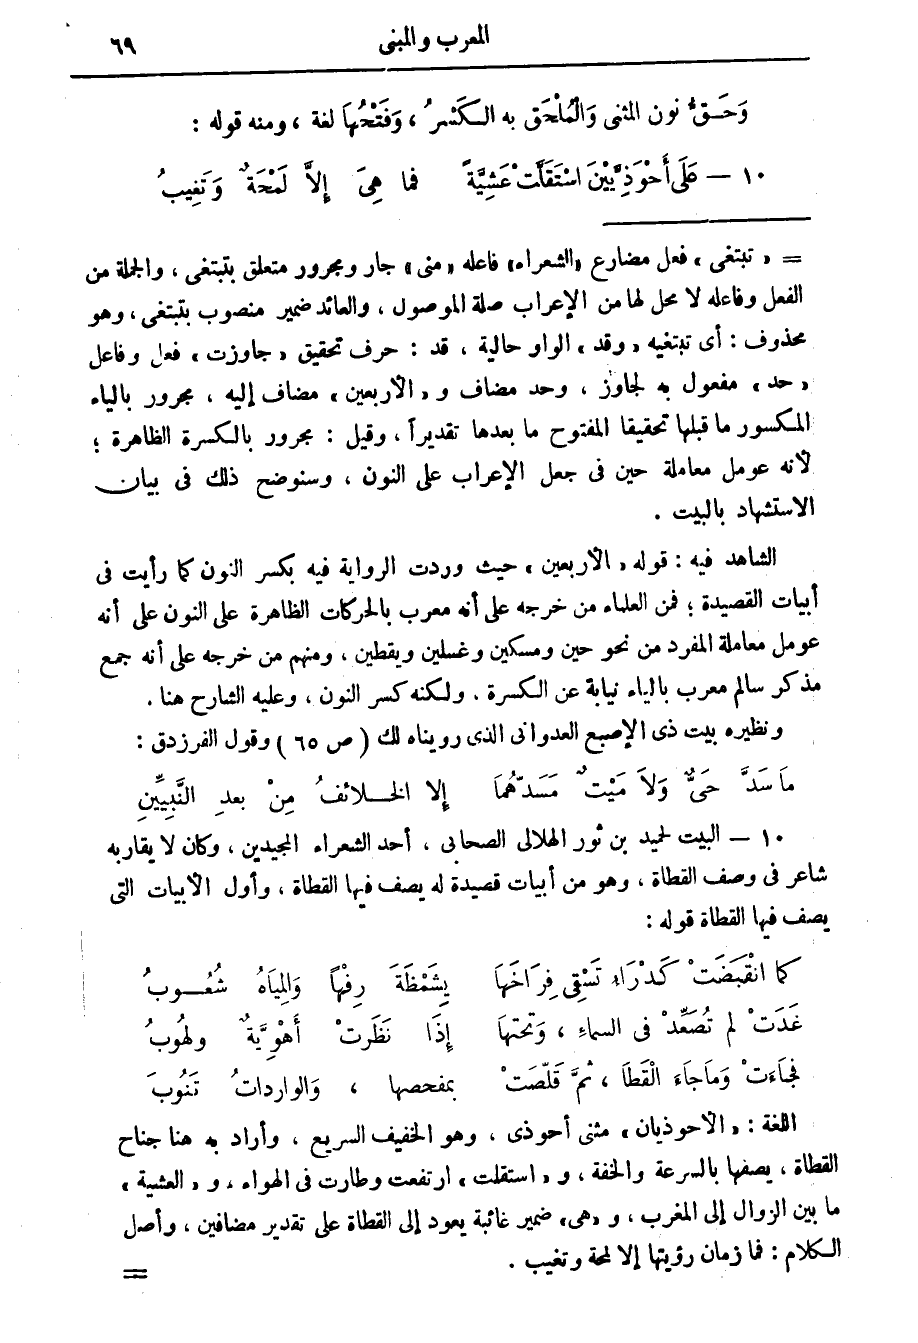 المعرب والمبنى ٦٩
وَحَقُّ نون المثنى وَالْمُلْحَقِ به الكَسْرُ ، وَفَتْحُهَا لغة ، ومنه قوله :
١٠ — عَلَى أَحْوَذِيَّيْنَ اسْتَقَلَّتْ عَشِيَّةً فما هِىَ إِلاَّ لَمْحَةٌ وَتَغِيبُ
= « تبتغى » فعل مضارع «الشعراء» فاعله «منى» جار ومجرور متعلق بتبتغى ، والجملة من
الفعل وفاعله لا محل لها من الإعراب صلة الموصول ، والعائد ضمير منصوب بتبتغى ، وهو
محذوف : أى تبتغيه «وقد» الواو حالية ، قد : حرف تحقيق «جاوزت» فعل وفاعل
«حد» مفعول به لجاوز ، وحد مضاف و «الأربعين» مضاف إليه ، مجرور بالياء
المكسور ما قبلها تحقيقا المفتوح ما بعدها تقديراً ، وقيل : مجرور بالكسرة الظاهرة ؛
لأنه عومل معاملة حين فى جعل الإعراب على النون ، وسنوضح ذلك فى بيان
الاستشهاد بالبيت .
الشاهد فيه : قوله «الأربعين» حيث وردت الرواية فيه بكسر النون كما رأيت فى
أبيات القصيدة ؛ فمن العلماء من خرجه على أنه معرب بالحركات الظاهرة على النون على أنه
عومل معاملة المفرد من نحو حين ومسكين وغسلين ويقطين ، ومنهم من خرجه على أنه جمع
مذكر سالم معرب بالياء نيابة عن الكسرة . ولكنه كسر النون ، وعليه الشارح هنا .
ونظيره بيت ذى الإصبع العدوانى الذى رويناه لك ( ص ٦٥ ) وقول الفرزدق :
مَا سَدَّ حَىٌّ وَلاَ مَيْتٌ مَسَدَّهُمَا إلا الخلائفُ مِنْ بعدِ النَّبِيِّينِ
١٠ — البيت لحميد بن ثور الهلالى الصحابى ، أحد الشعراء المجيدين ، وكان لا يقاربه
شاعر فى وصف القطاة ، وهو من أبيات قصيدة له يصف فيها القطاة ، وأول الأبيات التى
يصف فيها القطاة قوله :
كما انْقَبَضَتْ كَدْرَاء تَسْقِى فِرَاخَهَا بِشَمْظَةَ رِفْهًا وَالمِيَاهُ شُعُوبُ
غَدَتْ لم تُصَعِّدْ فى السماءِ ، وَتحتَهَا إِذَا نَظَرَتْ أَهْوِيَّةٌ ولهُوبُ
فجَاءَتْ وَمَا جَاءَ القَطَا ، ثمَّ قَلَّصَتْ بمفحصها ، وَالواردَاتُ تَنُوبَ
اللغة : «الأحوذيان» مثنى أحوذى ، وهو الخفيف السريع ، وأراد به هنا جناح
القطاة ، يصفها بالسرعة والخفة ، و «استقلت» ارتفعت وطارت فى الهواء ، و «العشية»
ما بين الزوال إلى المغرب ، و «هى» ضمير غائبة يعود إلى القطاة على تقدير مضافين ، وأصل
الكلام : فما زمان رؤيتها إلا لمحة وتغيب .
=